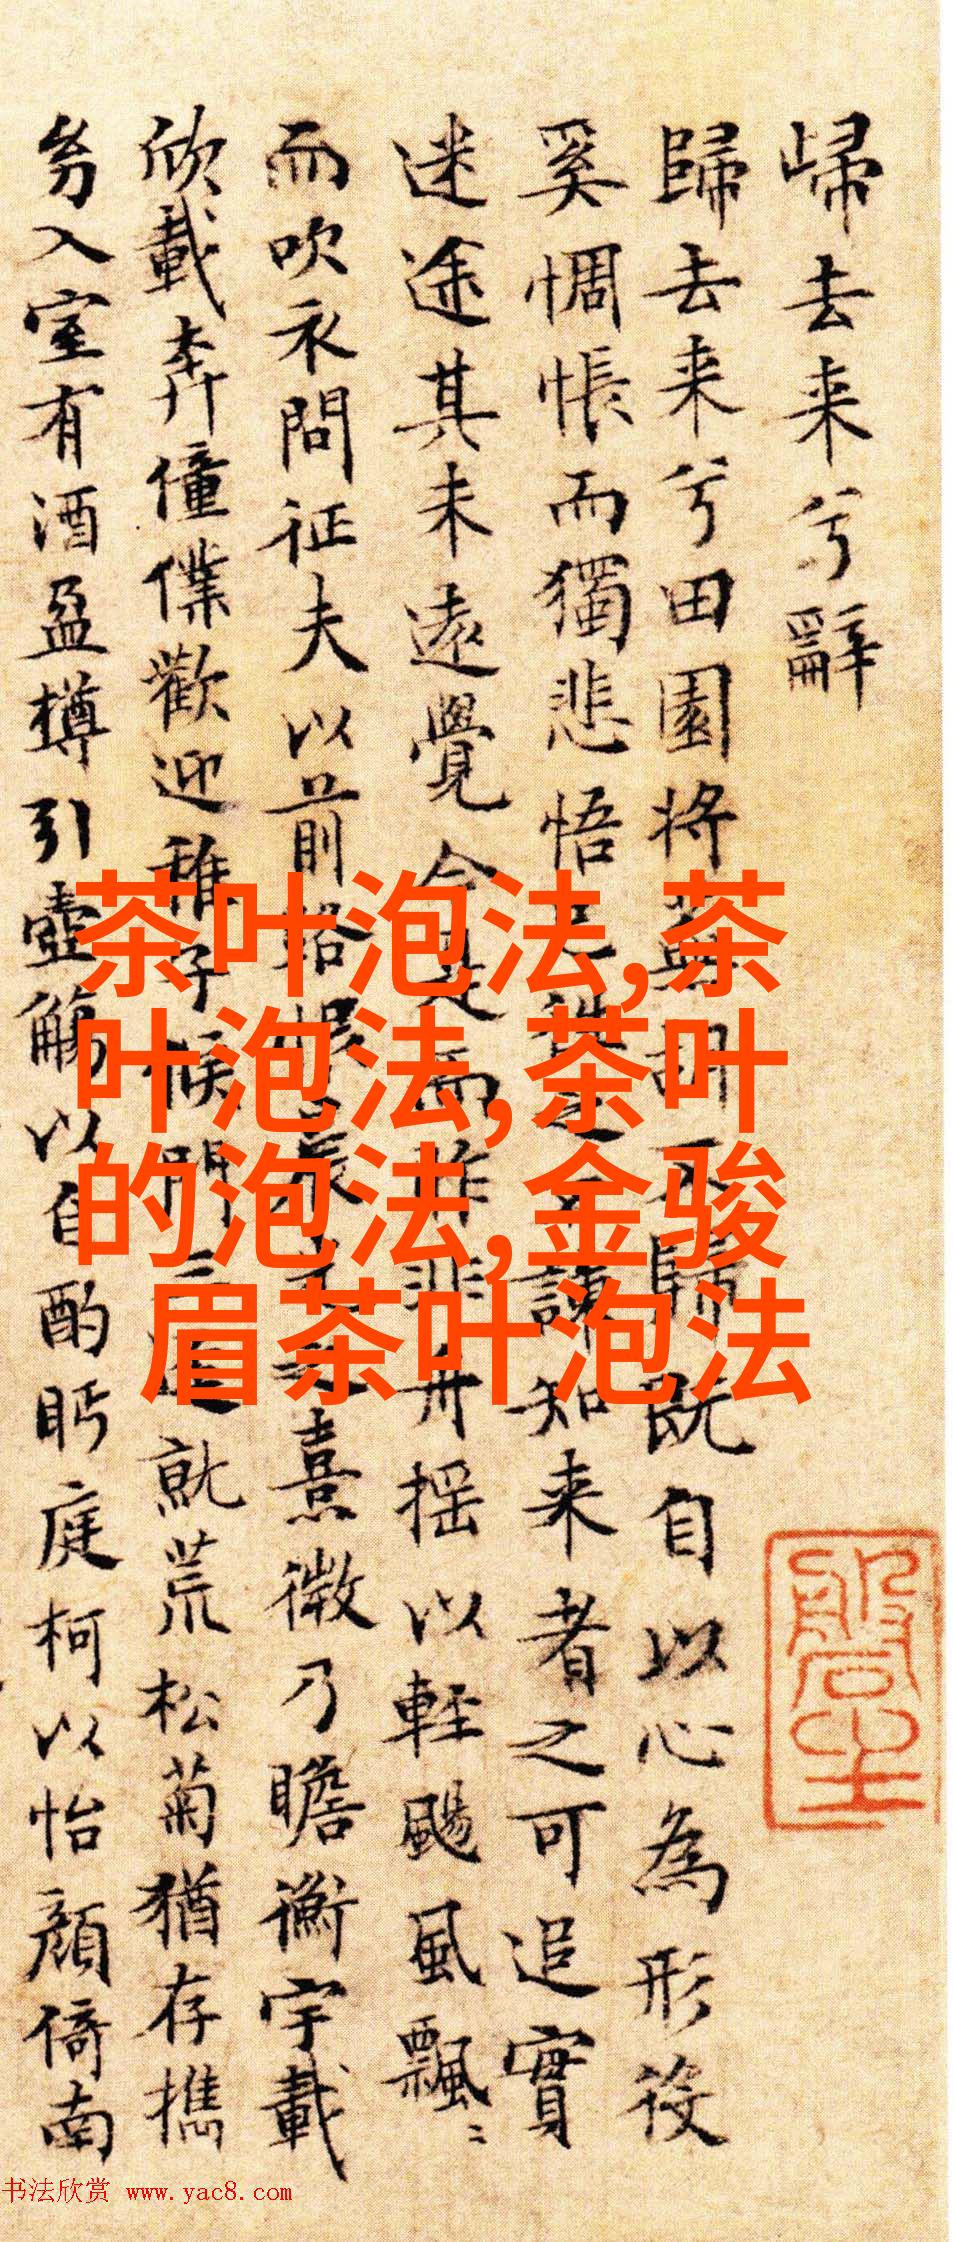 歸去来兮辭
歸去来兮田園將蕪胡不歸既自以心為形役
奚惆悵而獨悲悟已往之不諫知来者之可追實
迷途其未遠覺今是而昨非舟揺以輕颺風飄〻
而吹衣問征夫以前路恨晨光之熹微乃瞻衡宇載
欣載奔僮僕歡迎稚子候門三逕就荒松菊猶存携
幼入室有酒盈樽引壺觴以自酌眄庭柯以怡顏倚南
茶叶泡法,茶
叶泡法,茶叶
的泡法,金骏
眉茶叶泡法
书法欣赏 www.yac8.com